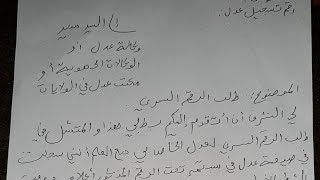 رقم تسجيل عدل.
إلى السيد مدير
وكالة عدل أو
الوكالات الجهوية أو
مكتب عدل في الولايات
الموضوع: طلب الرقم السري
لي الشرف أن أتقدم إليكم بطلبي هذا و المتمثل في
طلب الرقم السري لعدل الخاص بي مع العلم أنني سجلت
في صيغة عدل في سنة تحت الرقم المذكور أعلاه